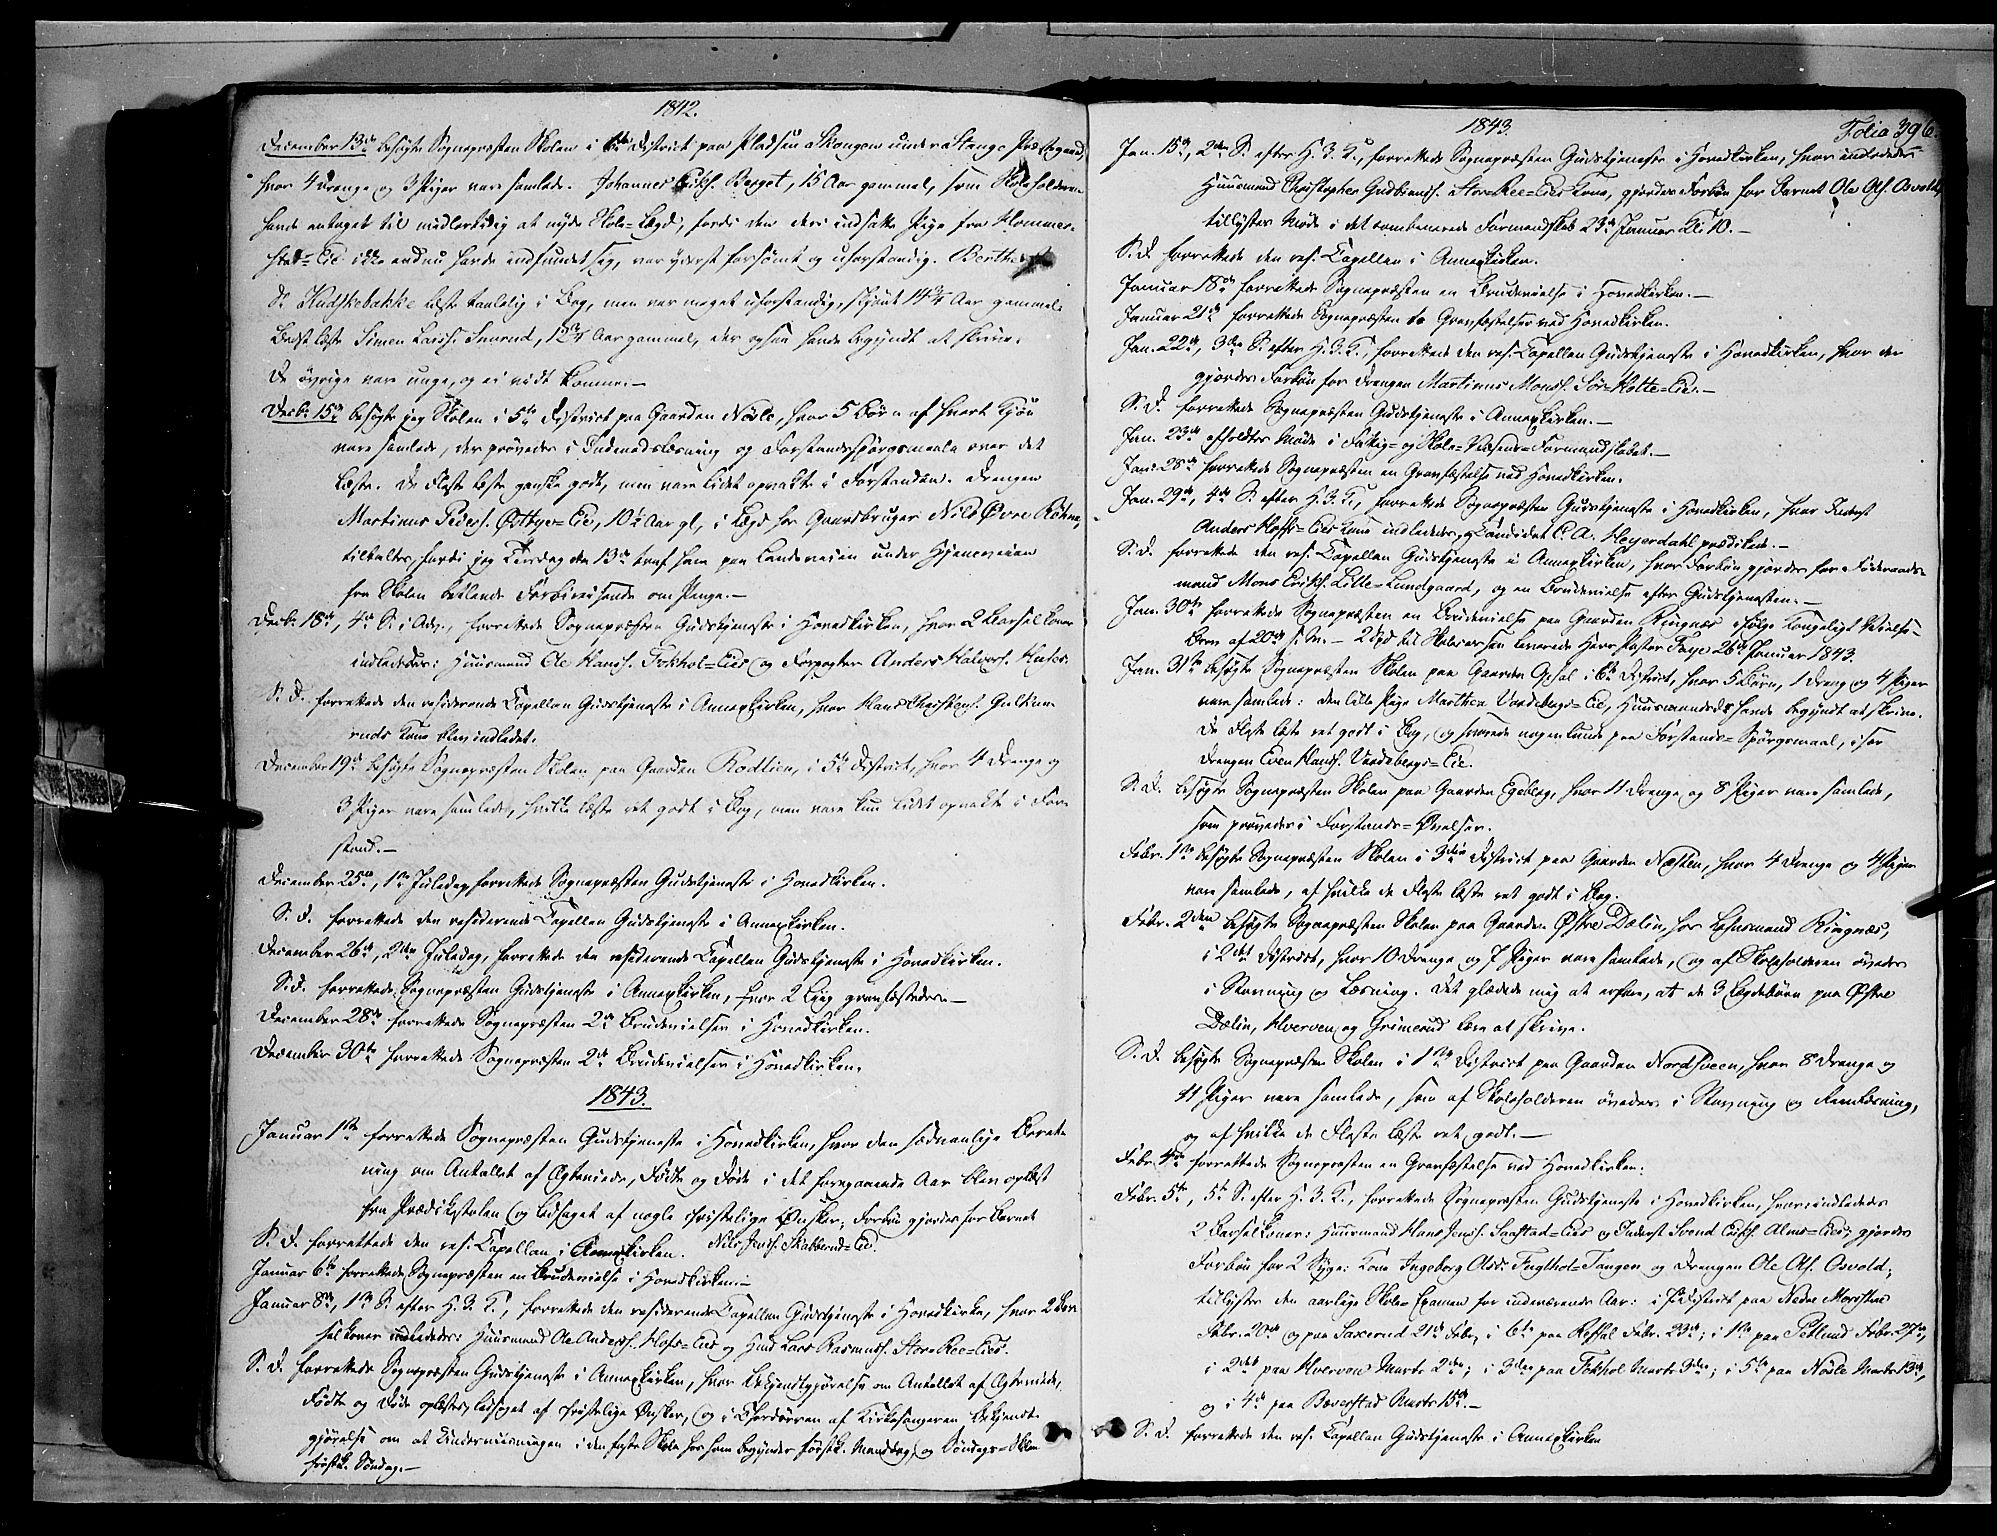 1842.
December 13de besøgte Sognepræsten Skolen i 1ste District paa Pladsen Skongen under Stange Præstegaard,
hvor 4 Drenge og 3 Piger vare samlede. Johannes Eriks. Berget, 15 Aar gammel, som Skoleholderen
havde antaget til midlertidig at nyde Skole=Lægd, fordi den deri indsatte Pige fra Hommer-
stad=Eie ikke endnu havde indfundet sig, var yderst forsømt og uforstandig. Berthe
Kudskebakke læste taalelig i Bog, men var meget uforstandig, skjønt 14 3/4 Aar gammel.
Bedst læste Simen Larss. Snorud, Aar gammel, der ogsaa havde begyndt at skrive.
De øvrige vare unge, og ei vidt komne.—
Decb. 15de besøgte jeg Skolen i 5te District paa Gaarden Nøsle, hvor 5 Børn af hvert Kjøn
vare samlede, der prøvedes i Indenadslæsning og Forstandsspørgsmaale over det
Læste. De Fleste læste ganske godt, men vare lidet opvakte i Forstanden. Drengen
Martinus Peders. =Eie, 10½ Aar gl, i Lægd hos Gaardbruger Nils Øvre Røhne,
tiltaltes, fordi jeg Tirsdag den 13de traf ham paa Landeveien under Hjemveien
fra Skolen betlende Forbireisende om Penge.—
Decb. 18de, 4de S. i Adv., forrettede Sognepræsten Gudstjeneste i Hovedkirken, hvor 2 Barselkoner
indlededes: Huusmand Ole Hanss. Fokhol=Eies og Forpagter Anders Halvors.
S. D. forrettede den residerende Capellan Gudstjeneste i Annexkirken, hvor Hans Christens.
ruds Kone blev indledet.
December 19de besøgte Sognepræsten Skolen paa Gaarden Rodlien, i 5te District, hvor 4 Drenge og
3 Piger vare samlede, hvilke læste ret godt i Bog, men vare kun lidet opvakte i For-
stand.—
December 25de, 1ste Juledag forrettede Sognepræsten Gudstjeneste i Hovedkirken.
S. D. forrettede den residerende Capellan Gudstjeneste i Annexkirken.
December 26de, 2den Juledag, forrettede den residerende Capellan Gudstjeneste i Hovedkirken.
S. D. forrettede Sognepræsten Gudstjeneste i Annexkirken, hvor 2 Liig gravfæstedes.—
December 28de forrettede Sognepræsten 2de Brudevielser i Hovedkirken.
December 30te forrettede Sognepræsten 2de Brudevielser i Hovedkirken.
1843.
Januar 1ste forrettede Sognepræsten Gudstjeneste i Hovedkirken, hvor den sædvanlige Beret-
ning om Antallet af Ægteviede, Fødte og Døde i det foregaaende Aar blev oplæst
fra Prædikestolen og ledsaget af nogle christelige Ønsker; Forbøn gjordes for Barnet
S. D. forrettede den res. Capellan i Annexkirken. Nils Skabberud=Eie.
Januar 6te forrettede Sognepræsten en Brudevielse i Hovedkirken.—
Januar 8de, 1ste S. efter H. 3. K., forrettede den residerende Capellan Gudstjeneste i Hovedkirken, hvor 2 Bar-
selkoner indlededes: Huusmand Ole Anderss. Hofs=Eies og Huusmd Lars Rasmuss. Store Ree=Eies.
S. D. forrettede Sognepræsten Gudstjeneste i Annexkirken, hvor Bekjendtgjørelse om Antallet af Ægteviede,
Fødte og Døde oplæstes, ledsaget af christelige Ønsker, og i Chordøren af Kirkesangeren Bekjendt-
gjørelse om at Underviisningen i den faste Skole hos ham begynder førstk. Mandag, og Søndags=Skolen
førstk. Søndag.—
1843.
Folio 396.
Jan. 15de, 2den S. efter H. 3. K., forrettede Sognepræsten Gudstjeneste i Hovedkirken, hvor indlededes
Huusmand Christopher Gudbrands. Store Ree=Eies Kone, gjordes Forbøn for Barnet Ole Ols. Osvold,
tillystes Møde i det combinerede Formandskab 23de Januar Kl. 10.—
S. D. forrettede den res. Capellan i Annexkirken.
Januar 18de forrettede Sognepræsten en Brudevielse i Hovedkirken.—
Januar 21de forrettede Sognepræsten to Gravfæstelser ved Hovedkirken.
Jan. 22de, 3die S. efter H. 3. K., forrettede den res. Capellan Gudstjeneste i Hovedkirken, hvor der
gjordes Forbøn for Drengen Martinus Monss. Sør=Holte=Eie.—
S. D. forrettede Sognepræsten Gudstjeneste i Annexkirken.—
Jan. 23de afholdtes Møde i Fattig= og Skole=Væsens=Formandskabet.—
Jan. 28de forrettede Sognepræsten en Gravfæstelse ved Hovedkirken.
Jan. 29de, 4de S. efter H. 3. K., forrettede Sognepræsten Gudstjeneste i Hovedkirken, hvor Inderst
Anders Hoffs=Eies Kone indlededes, og Candidat C. A. Heyerdahl prædikede.—
S. D. forrettede den res. Capellan Gudstjeneste i Annexkirken, hvor Forbøn gjordes for Føderaads-
mand Mons Eriks. Lille=Lundgaard, og en Brudevielse efter Gudstjenesten.—
Jan. 30te forrettede Sognepræsten en Brudevielse paa Gaarden Ringnæs ifølge kongeligt Vielses-
Brev af 20de s. M.— 2 Spd til Skolecassen leverede Herr Pastor Faye 26de Januar 1843.
Jan. 31te besøgte Sognepræsten Skolen paa Gaarden i 6te District, hvor 5 Børn, 1 Dreng og 4 Piger
vare samlede: den lille Pige Marthea Vardebergs=Eie, Huusmandsdr havde begyndt at skrive.
De Fleste læste ret godt i Bog, og svarede nogenlunde paa Forstands=Spørgsmaal, især
Drengen Even Hanss. Vardebergs=Eie.
S. D. besøgte Sognepræsten Skolen paa Gaarden Egeberg, hvor 11 Drenge og 8 Piger vare samlede,
som prøvedes i Forstands=Øvelser.
Febr. 1ste besøgte Sognepræsten Skolen i 3die District paa Gaarden Næsten, hvor 4 Drenge og 4 Piger
vare samlede, af hvilke de Fleste læste ret godt i Bog.
Febr. 2den besøgte Sognepræsten Skolen paa Gaarden Østre Dælin, hos Lehnsmand Ringnæs,
i 2det District, hvor 10 Drenge og 7 Piger vare samlede, og af Skoleholderen øvedes
i Stavning og Læsning. Det glædede mig at erfare, at de 3 Lægdebørn paa Østre
Dælin, Hverven og Grimerud lære at skrive.
S. D. besøgte Sognepræsten Skolen i 1ste District paa Gaarden Nordsveen, hvor 8 Drenge og
11 Piger vare samlede, som af Skoleholderen øvedes i Stavning og Reenlæsning,
og af hvilke de Fleste læste ret godt.—
Febr. 4de forrettede Sognepræsten en Gravfæstelse ved Hovedkirken.
Febr. 5te, 5te S. efter H. 3. K., forrettede Sognepræsten Gudstjeneste i Hovedkirken, hvor indlededes
2 Barselkoner: Huusmand Hans Jenss. Saastad=Eies og Inderst Svend Eriks. Alms=Eies; gjordes
Forbøn for 2 Syge: Kone Ingeborg Olsd. Fuglhol=Tangen og Drengen Ole Ols. Osvold;
tillystes den aarlige Skole=Examen for indeværende Aar: i District paa Nedre
Febr. 20de og paa Saxerud 21de Febr., i 6te paa Febr. 23de; i 1ste paa Petlund Febr. 27de,
i 2det paa Hverven Marts 2den; i 3die paa Fokhol Marts 3die; i 5te paa Nøsle Marts 13de,
og i 4de paa Bæverstad Marts 15de.—
S. D. forrettede den res. Capellan Gudstjeneste i Annexkirken